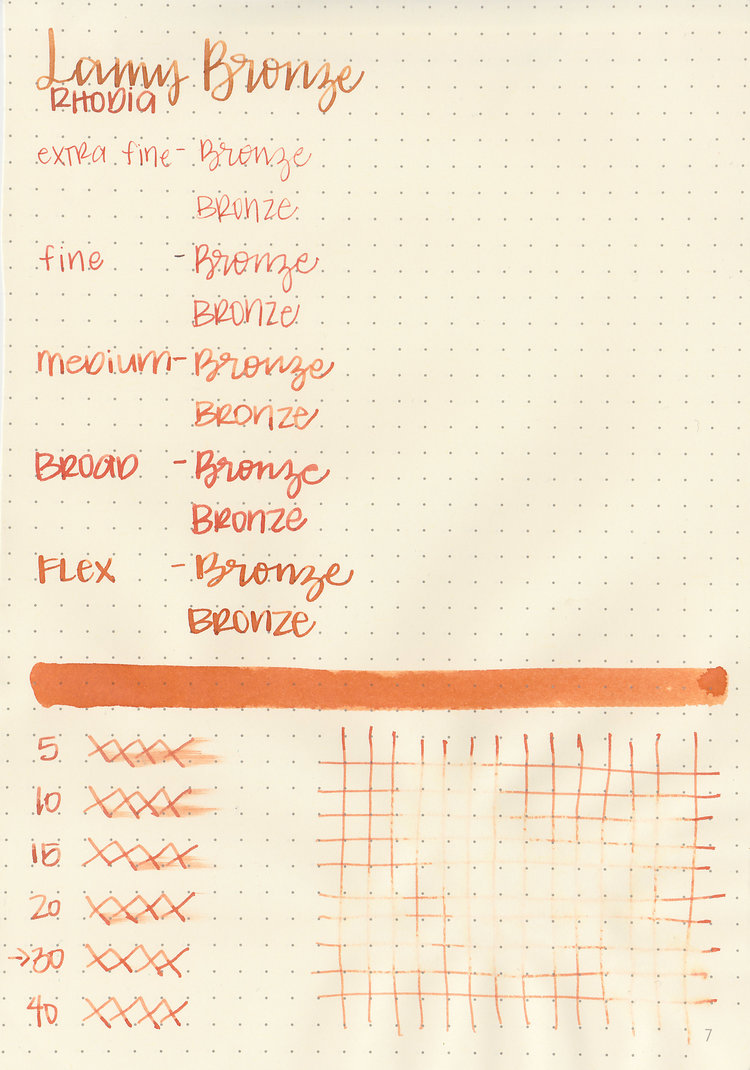 Lamy Bronze
RHODIA
extra fine - Bronze
BRONZE
fine - Bronze
BRONZE
medium - Bronze
BRONZE
BROAD - Bronze
BRONZE
FLex - Bronze
BRONZE
5 XXXX
10 XXXX
15 XXXX
20 XXXX
→30 XXXX
40 XXXX
7